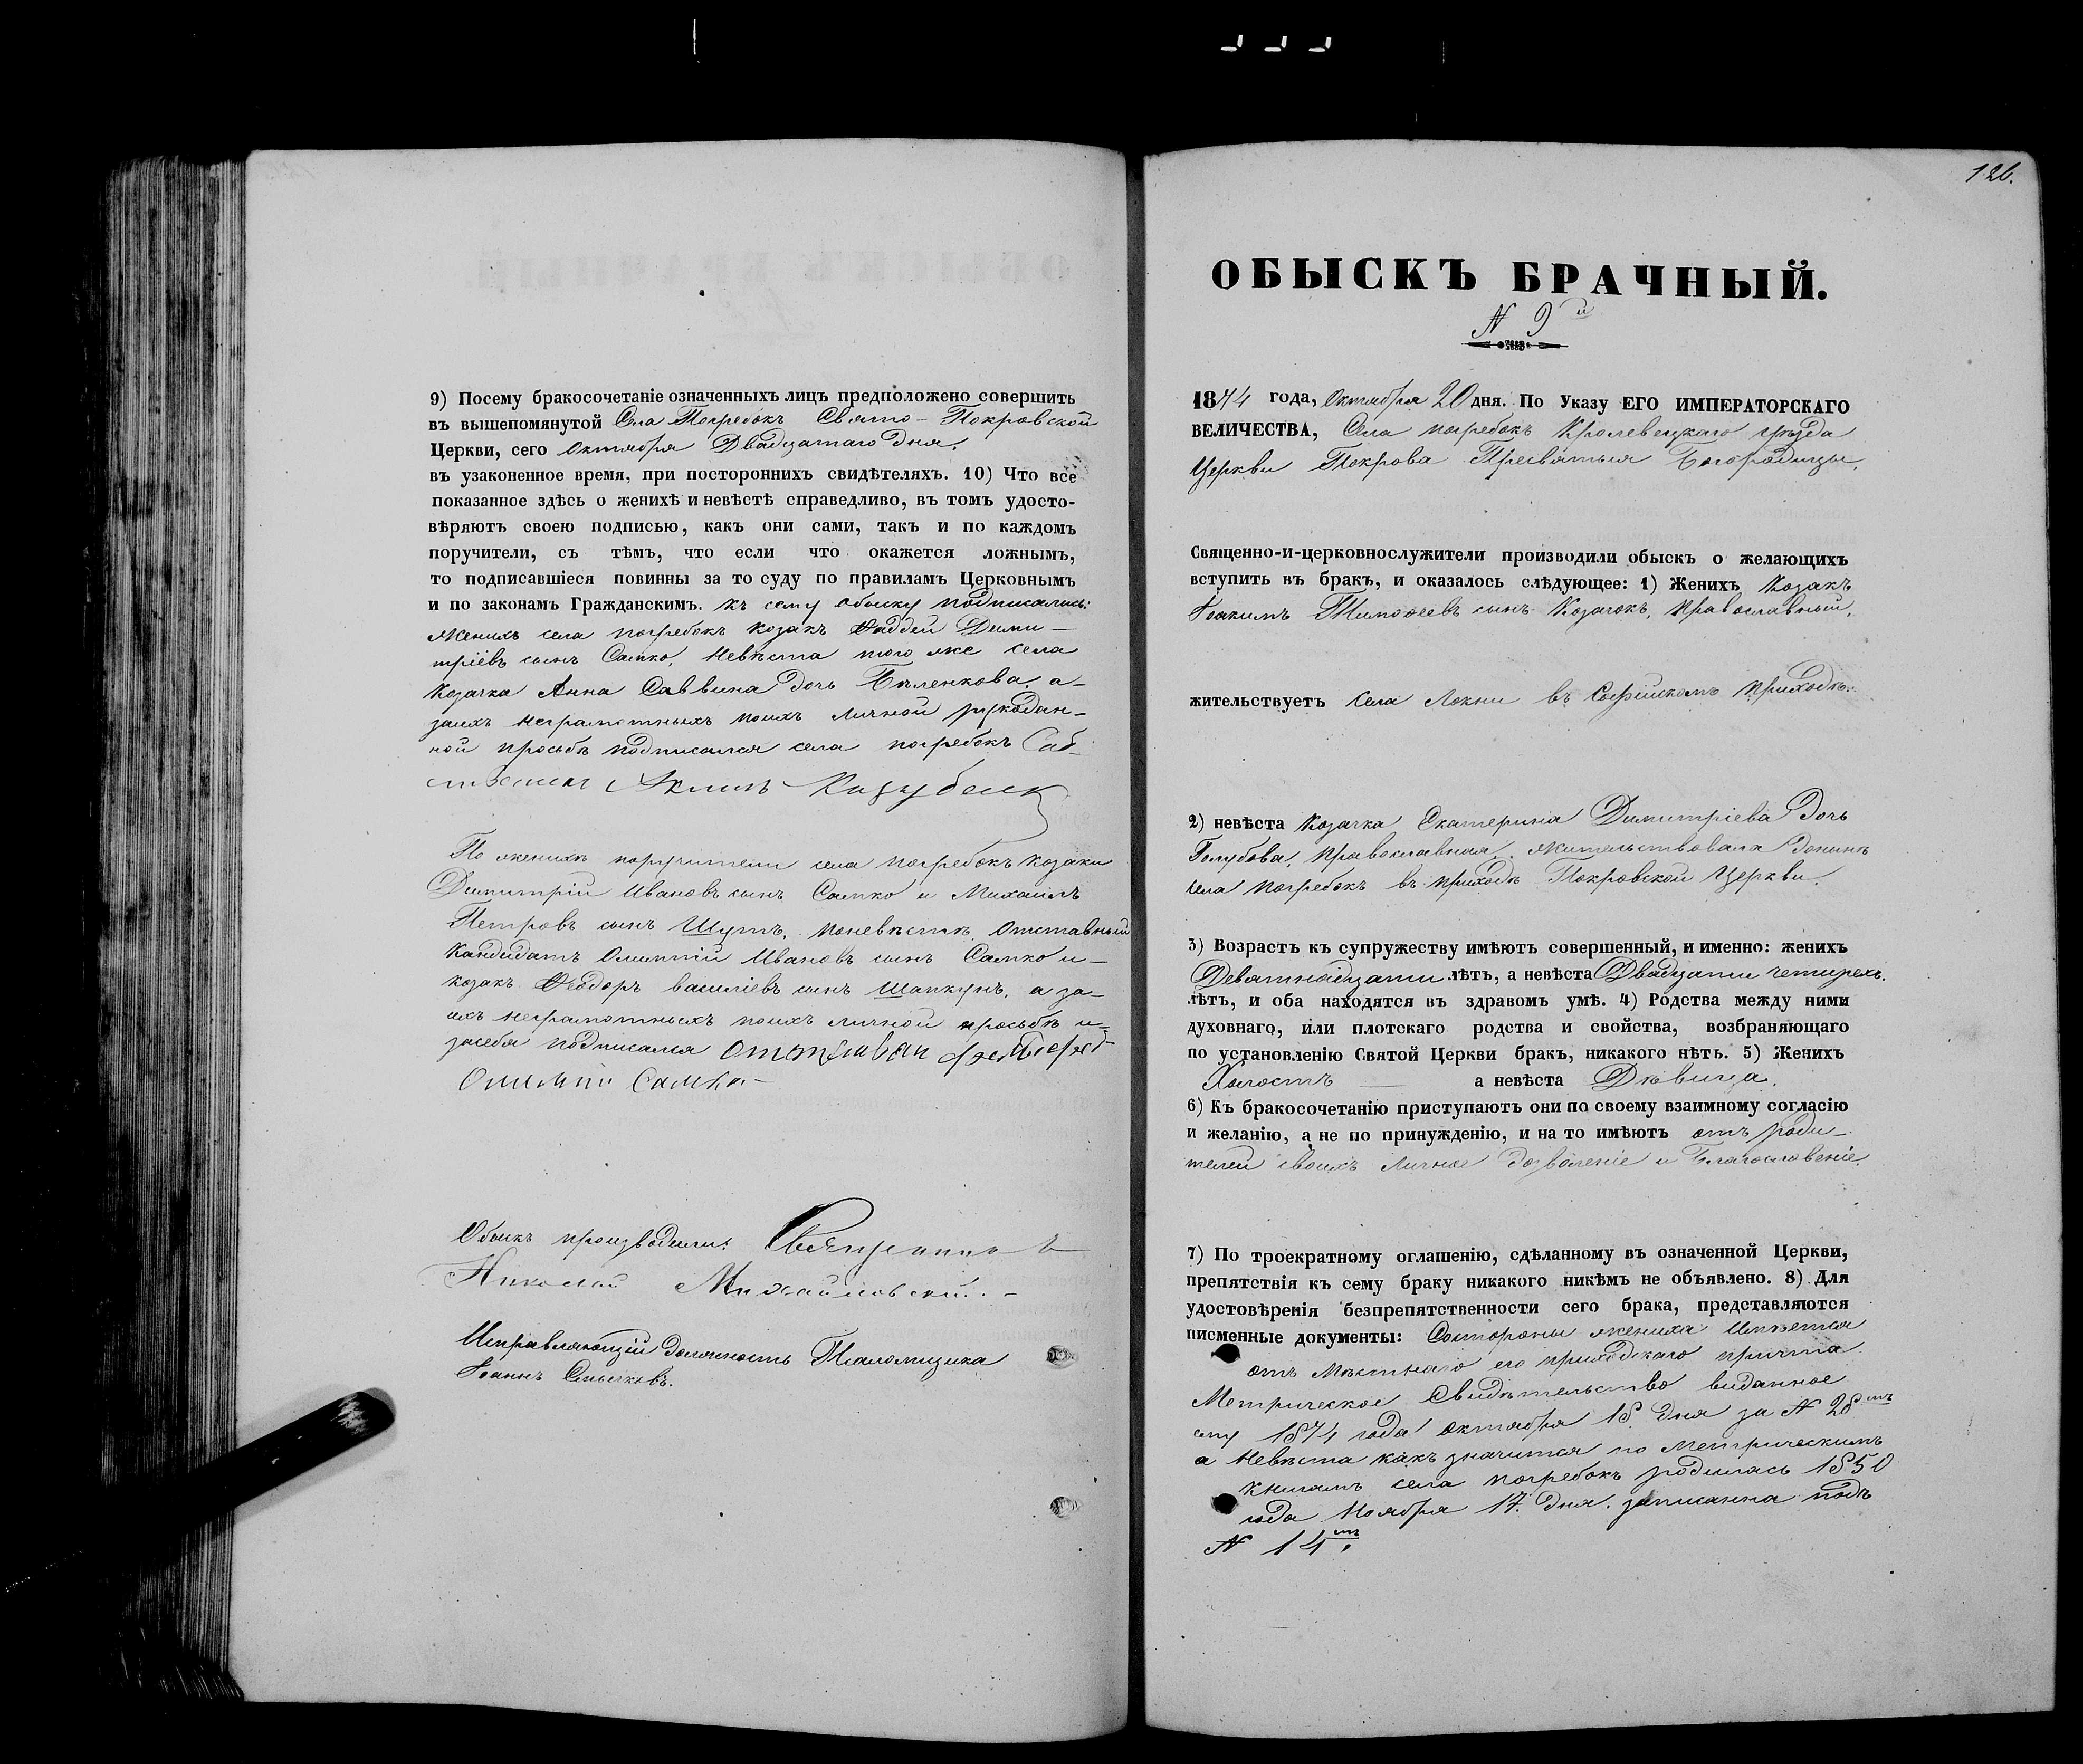 9) Посему бракосочетаніе означенныхъ лицъ предположено совершить
въ вышепомянутой Села Погребокъ Свято-Покровской
Церкви, сего Октября Двадцатаго дня,
въ узаконенное время, при постороннихъ свидѣтеляхъ. 10) Что все
показанное здѣсь о женихѣ и невѣстѣ справедливо, въ томъ удосто-
вѣряютъ своею подписью, какъ они сами, такъ и по каждомъ
поручители, съ тѣмъ, что если что окажется ложнымъ,
то подписавшіеся повинны за то суду по правиламъ Церковнымъ
и по законамъ Гражданскимъ. къ сему обыску подписались:
женихъ села погребокъ козакъ Фаддей Дими-
тріевъ сынъ Самко, Невѣста того же села
козачка Анна Саввина дочь Биленкова, а-
заихъ неграмотныхъ поихъ личной рукодан-
ной просьбѣ подписался села погребокъ
Акимъ
По женихѣ поручители села погребокъ козаки
Димитрій Ивановъ сынъ Самко и Михаилъ
Петровъ сынъ Шутъ, поневѣстѣ Отставный
Кандидатъ Олимпій Ивановъ сынъ Самко и-
козакъ Ѳеодоръ василіевъ сынъ Шапкунъ, а за-
ихъ неграмотныхъ поихъ личной просьбѣ и-
засебя подписался
Олимпій Самко-
Обыскъ производили: Священникъ
Николай Михайловскій.-
Исправляющій должность Псаломщика
Іоаннъ
126.
ОБЫСКЪ БРАЧНЫЙ.
N 9й
1874 года, Октября 20 дня. По Указу ЕГО ИМПЕРАТОРСКАГО
ВЕЛИЧЕСТВА, Села погребокъ Кролевецкаго уѣзда
Церкви Покрова Пресвятыя Богородицы,
Священно-и-церковнослужители производили обыскъ о желающихъ
вступить въ бракъ, и оказалось слѣдующее: 1) Женихъ Козакъ
Іоакимъ Тимоѳеевъ сынъ Козачокъ, православный,
жительствуетъ села Локни въ Софійскомъ приходѣ.
2) невѣста Козачка Екатерина Димитріева дочь
Голубова, православная, жительствовала донынѣ
села погребокъ въ приходѣ Покровской Церкви.
3) Возрастъ къ супружеству имѣютъ совершенный, и именно: женихъ
Девятнадцати лѣтъ, а невѣста Двадцати четирехъ.
лѣтъ, и оба находятся въ здравомъ умѣ. 4) Родства между ними
духовнаго, или плотскаго родства и свойства, возбраняющаго
по установленію Святой Церкви бракъ, никакого нѣтъ. 5) Женихъ
Холостъ — а невѣста Дѣвица.
6) Къ бракосочетанію приступаютъ они по своему взаимному согласію
и желанію, а не по принужденію, и на то имѣютъ отъ роди-
телей своихъ личное дозволеніе и Благословеніе.
7) По троекратному оглашенію, сдѣланному въ означенной Церкви,
препятствія къ сему браку никакого никѣмъ не объявлено. 8) Для
удостовѣренія безпрепятственности сего брака, представляются
писменные документы: Состороны жениха Имѣется
отъ мѣстнаго его приходскаго причта
Метрическое Свидѣтельство виданное
ему 1874 года октября 18 дня за N 28мъ
а Невѣста какъ значится по метрическимъ
книгамъ села погребокъ родилась 1850
года Ноября 17. дня. записанна подъ
N 14